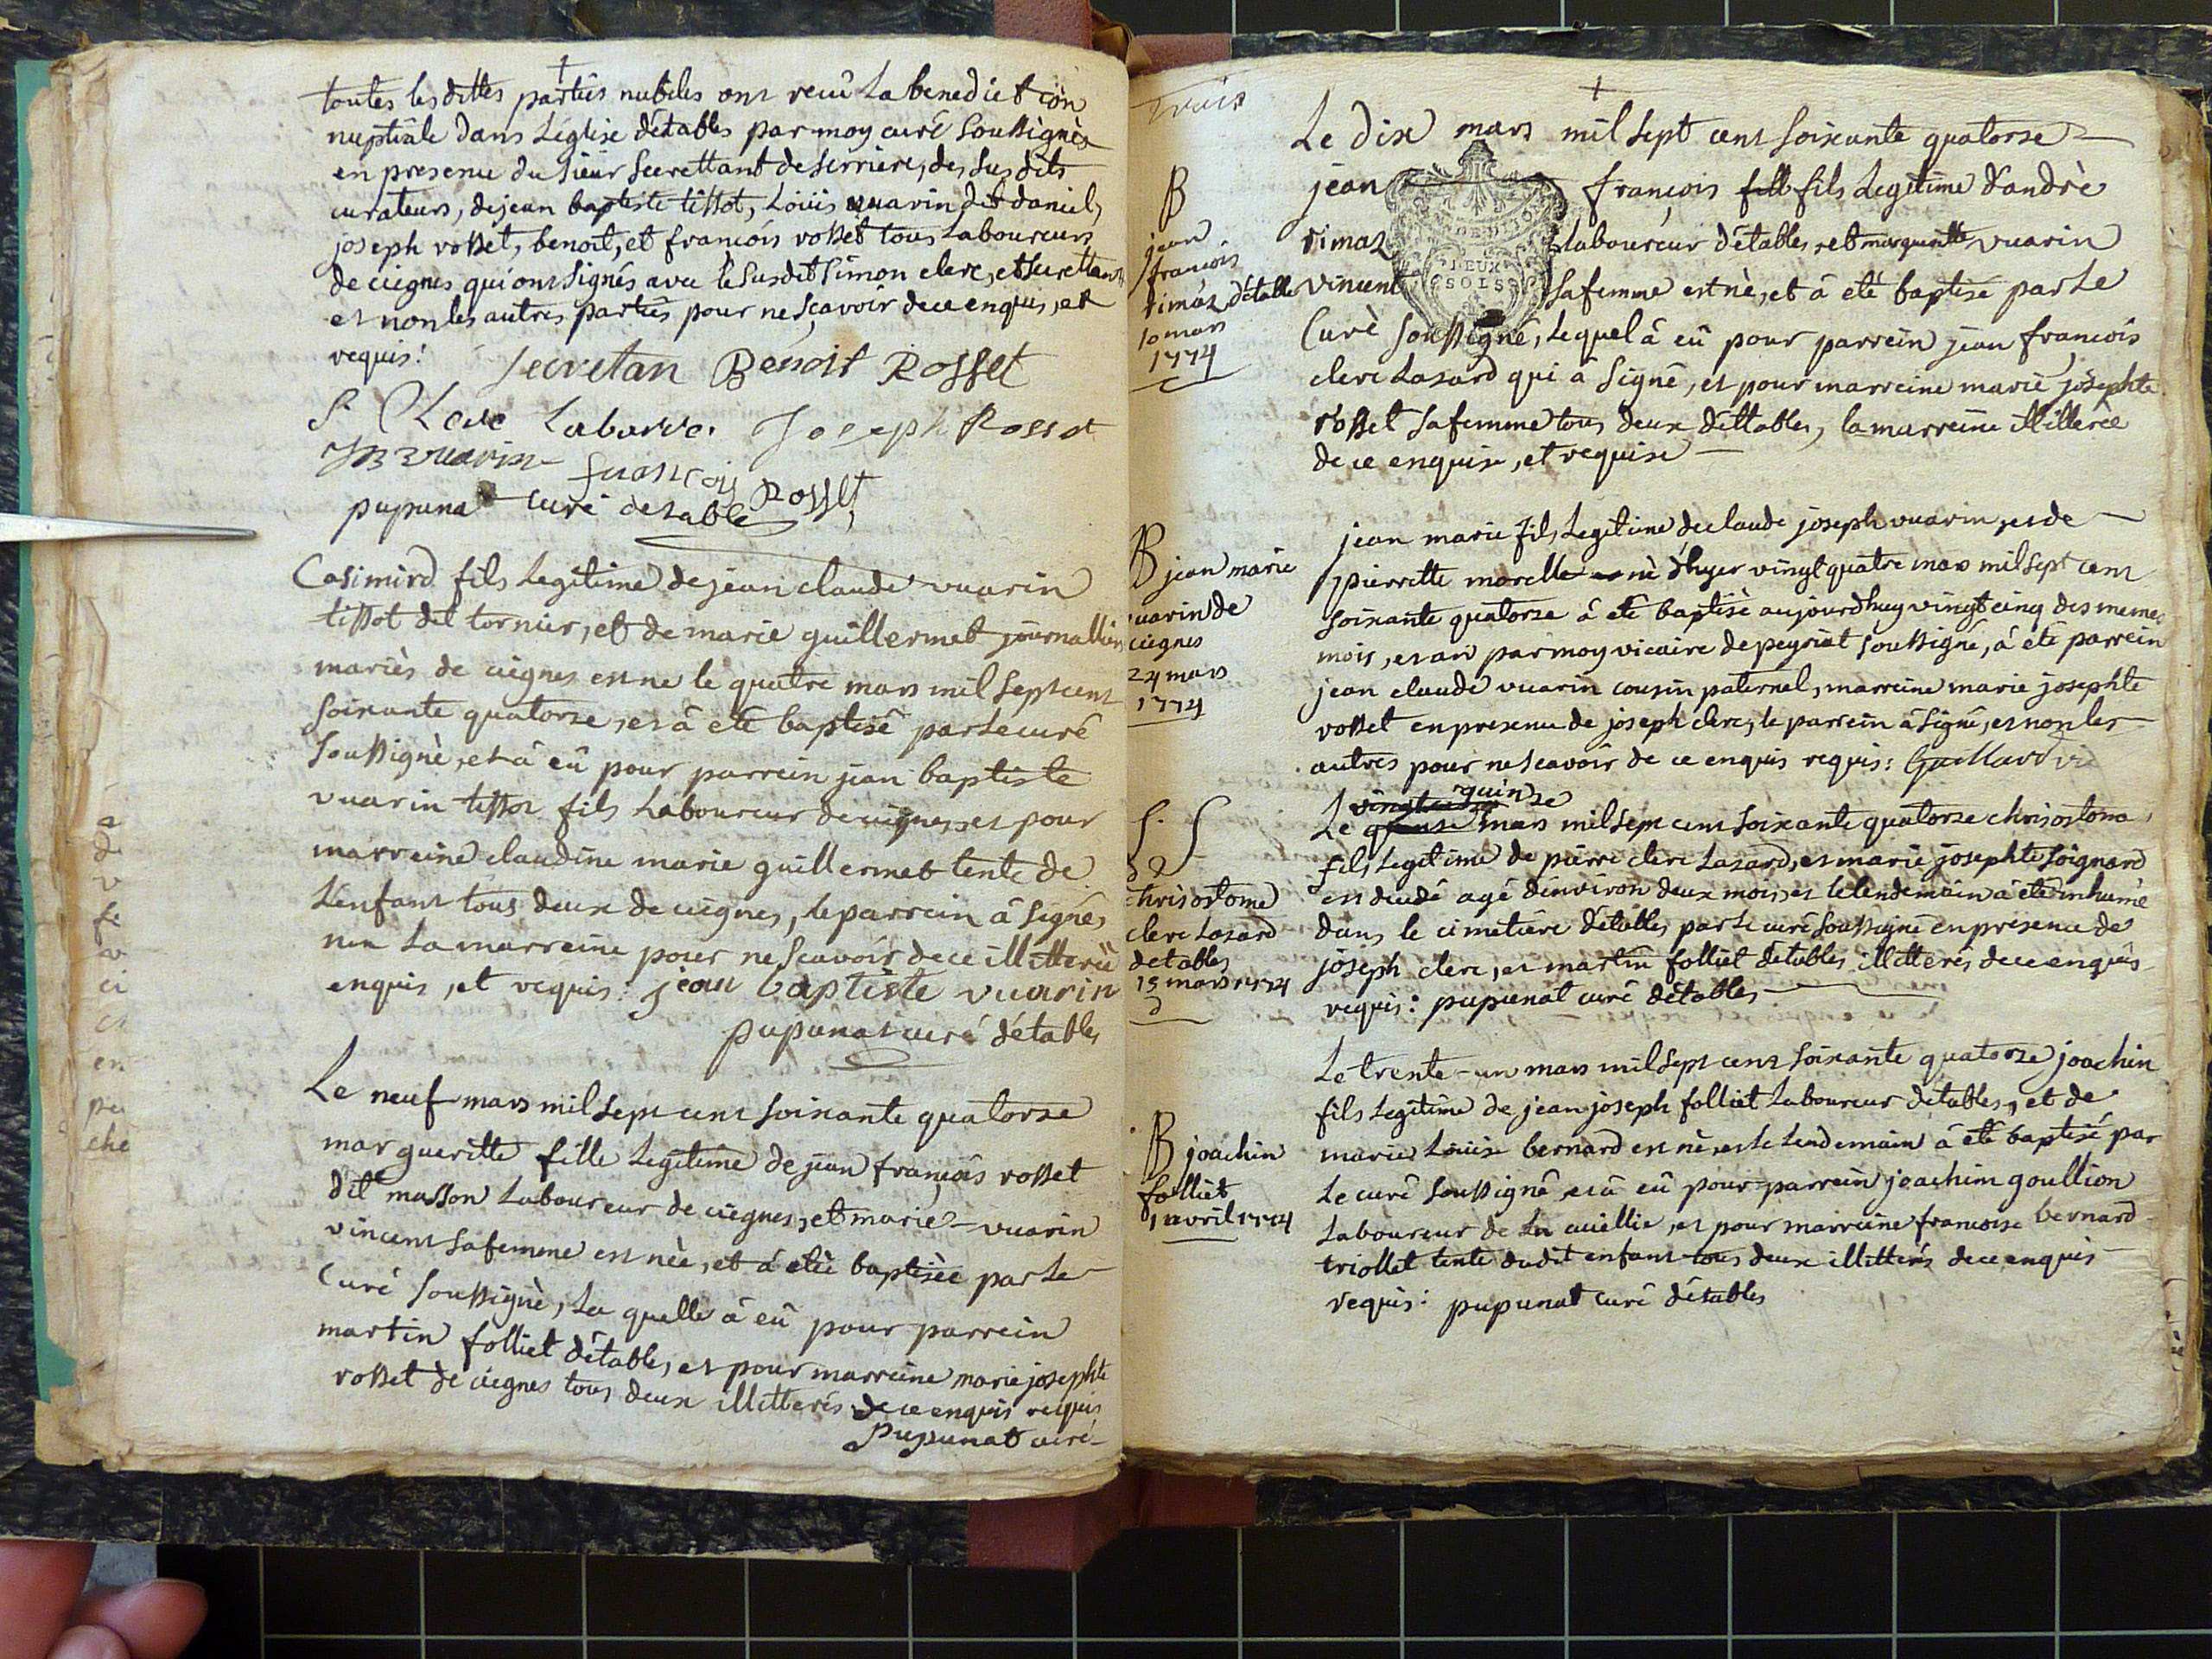 toutes les dittes parties nubiles ont reçû La benediction
nuptiale dans Léglise détables par moy curé soussignés
en presence du sieur secrettant de serriere, des susdits
curateurs, de jean baptiste tissot, Loüis vuarin dit daniel,
joseph rosset, benoit, et françois rosset tous Laboureurs
de ciegnes qui ont signés avec le susdit simon clerc, et secrettant
et non les autres parties pour ne sçavoir de ce enquis, et
requis:
secretan Benoit Rosset
S. Clerc Labarre. Joseph Rosset
vuarin
francois Rosset
pupunat curé détables
Casimird fils Legitime de jean claude vuarin
tissot dit tornier, et de marie guillermet journallier
mariès de ciegnes est ne le quatre mars mil sept cent
soixante quatorse, et à eté baptisé par le curé
soussignè, et à eû pour parrein jean baptiste
vuarin tissot fils Laboureur de ciegnes, et pour
marreine claudine marie guillermet tente de
L'enfant tous deux de ciegnes, le parrein à signés
non La marreine pour ne scavoir de ce illitterée
enquis, et requis: jean baptiste vuarin
pupunat curé détables
Le neuf mars mil sept cent soixante quatorse
margueritte fille Legitime de jean françois rosset
dit masson Laboureur de ciegnes, et marie vuarin
vincent sa femme est née, et à etée baptisée par le
Curé soussignè, La quelle à eû pour parrein
martin folliet détables, et pour marreine marie josephte
rosset de ciegnes tous deux illitterés de ce enquis requis
pupunat curé
trois
Le dix mars mil sept cent soixante quatorse
B
jean
françois
rimaz détables
10 mars
1774
jean françois fill fils Legitime d'andrè
rimaz Laboureur détables, et margueritte vuarin
DEUX
SOLS
vincent sa femme est nè, et à eté baptisé par Le
Curè soussigné, Lequel à eû pour parrein jean françois
clerc Lasard qui à signé, et pour marreine marie josephte
rosset sa femme tous deux détables, la marreine illiterée
de ce enquise, et requise
B jean marie
vuarin de
ciegnes
24 mars
1774
jean marie fils Legitime de claude joseph vuarin, et de
pierrette morelle né d'hyer vingt quatre mars mil sept cent
soixante quatorse à eté baptisè aujourdhuy vingt cinq des memes
mois, et an par moy vicaire de peyriat soussigné, à eté parrein
jean claude vuarin cousin paternel, marreine marie josephte
rosset en presence de joseph clerc, le parrein à signé, et non les
autres pour ne scavoir de ce enquis requis: Guillard vic
S. S
christostome
clerc Lasard
détables
15 mars 1774
d
quinze
Le mars mil sept cent soixante quatorse chrisostome
fils Legitime de pierre clerc Lasard, et marie josephte soignard
est decedé agé dénviron deux mois, et le lendemain à eté inhumè
dans le cimetière détables par le curé soussigné en presence de
joseph clerc, et martin folliet détables illitterés de ce enquis
requis: pupunat curé détables
B joachin
folliet
1 avril 1774
Le trente-un mars mil sept cent soixante quatorze joachin
fils Legitime de jean joseph folliet Laboureur détables, et de
marie Loüise bernard est nè, et le Lendemain à eté baptisé par
Le curé soussigné, et à eû pour parrein joachim goullion
Laboureur de La cuellie, et pour marreine francoise bernard
triollet tente du dit enfant tous deux illitterés de ce enquis
requis: pupunat curé détables